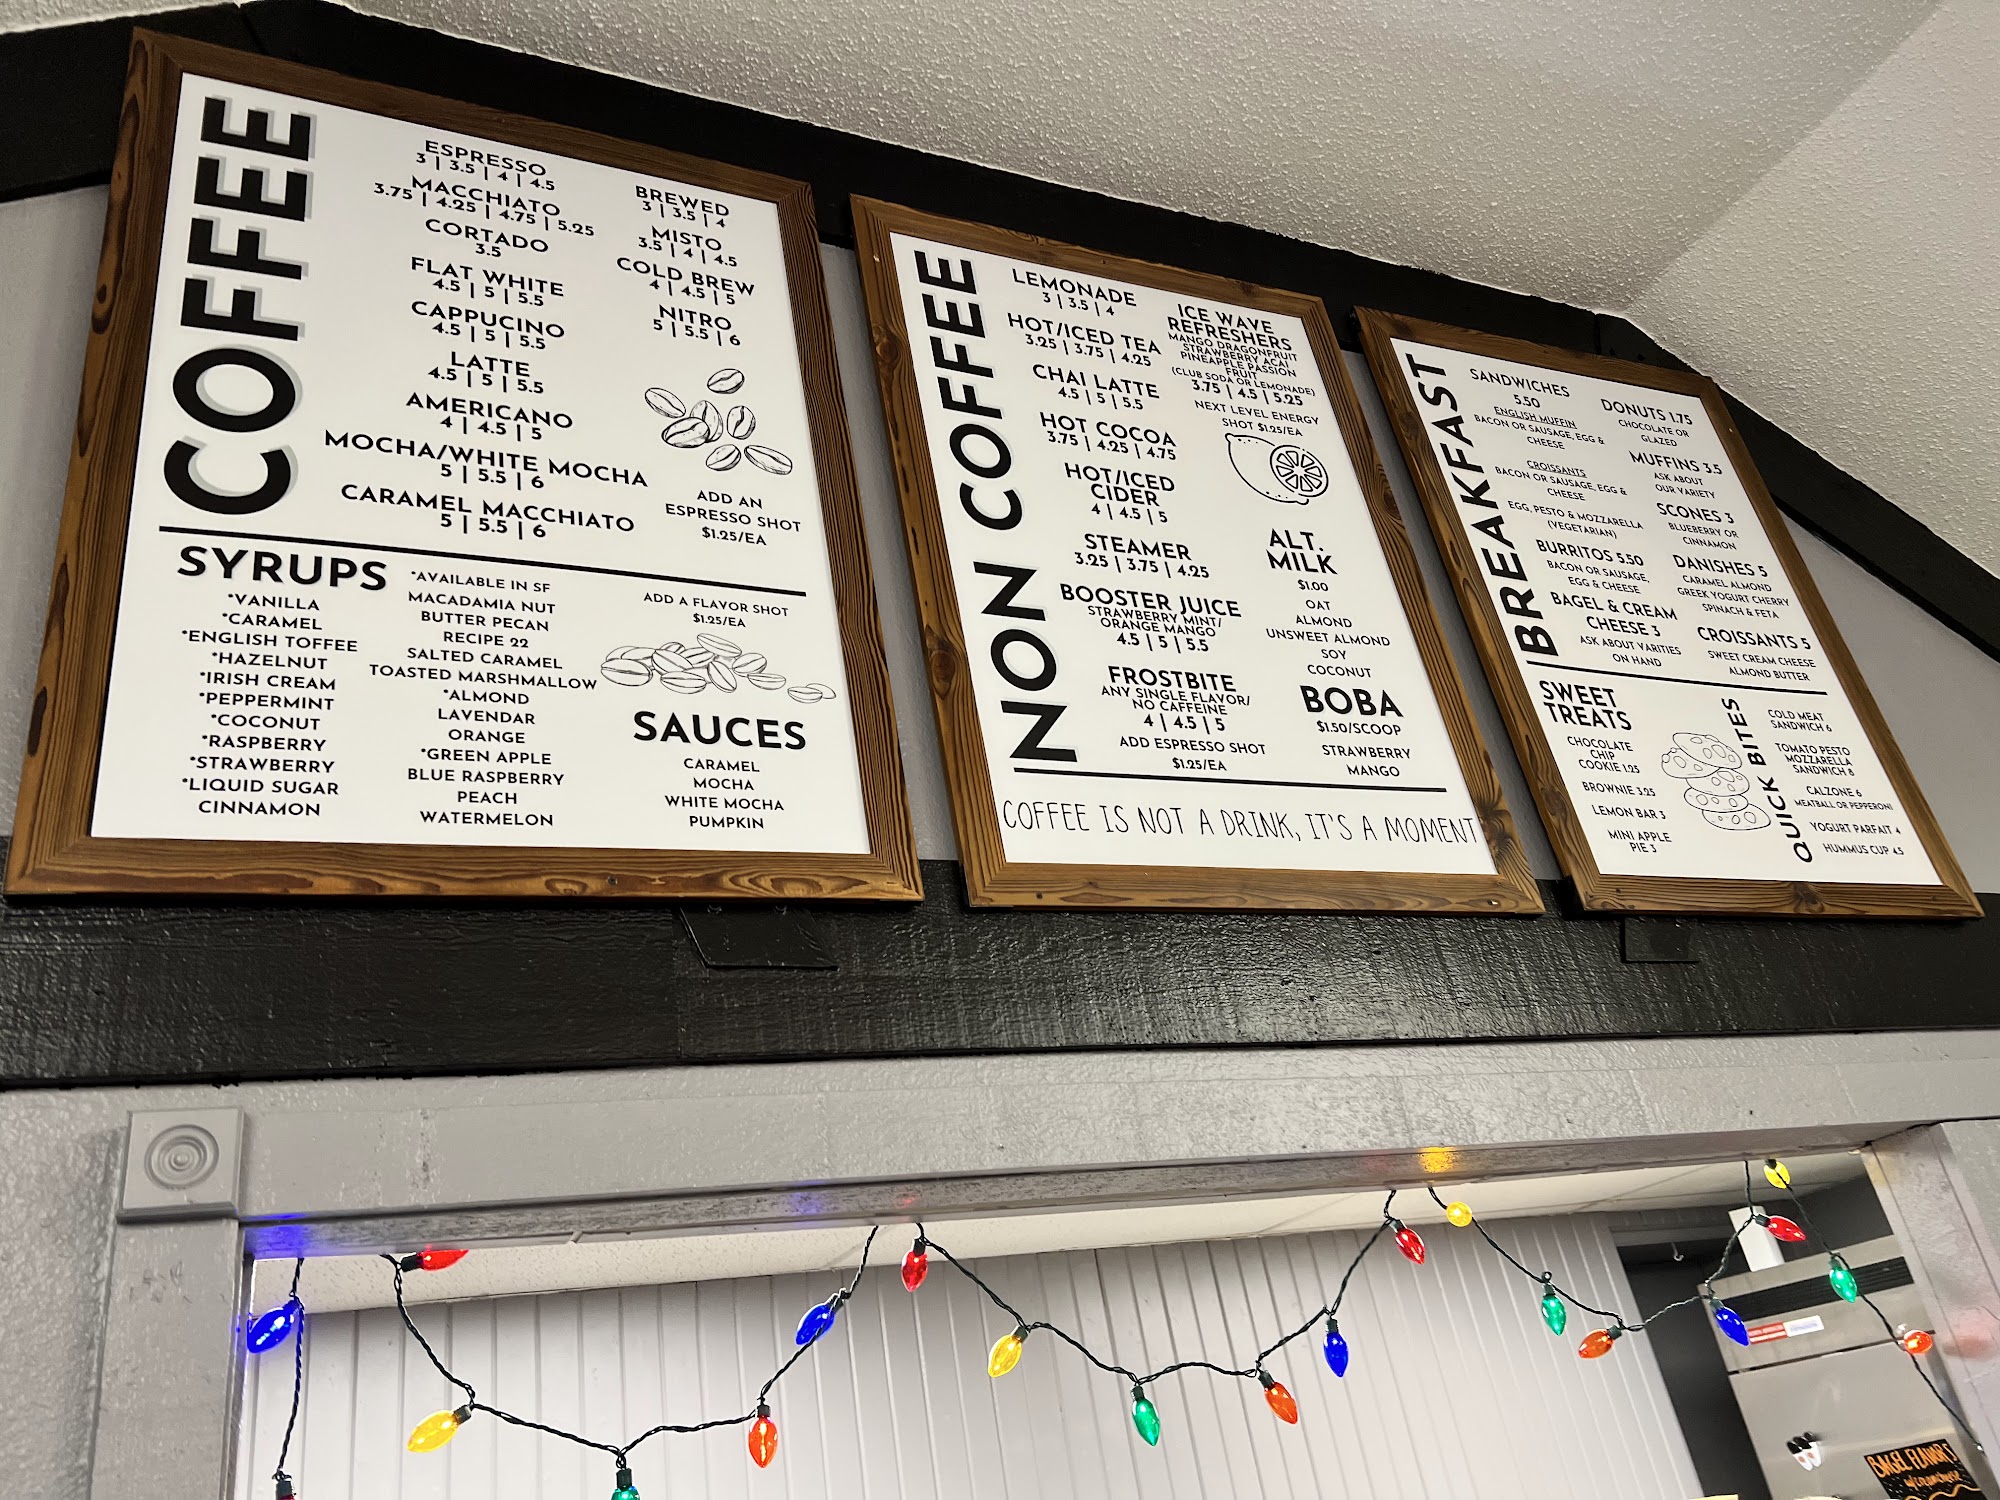 COFFEE
ESPRESSO
3 | 3.5 | 4 | 4.5
MACCHIATO
3.75 | 4.25 | 4.75 | 5.25
CORTADO
3.5
FLAT WHITE
4.5 | 5 | 5.5
CAPPUCINO
4.5 | 5 | 5.5
LATTE
4.5 | 5 | 5.5
AMERICANO
4 | 4.5 | 5
MOCHA/WHITE MOCHA
5 | 5.5 | 6
CARAMEL MACCHIATO
5 | 5.5 | 6
BREWED
3 | 3.5 | 4
MISTO
3.5 | 4 | 4.5
COLD BREW
4 | 4.5 | 5
NITRO
5 | 5.5 | 6
ADD AN
ESPRESSO SHOT
$1.25/EA
SYRUPS
*VANILLA
*CARAMEL
*ENGLISH TOFFEE
*HAZELNUT
*IRISH CREAM
*PEPPERMINT
*COCONUT
*RASPBERRY
*STRAWBERRY
*LIQUID SUGAR
CINNAMON
*AVAILABLE IN SF
MACADAMIA NUT
BUTTER PECAN
RECIPE 22
SALTED CARAMEL
TOASTED MARSHMALLOW
*ALMOND
LAVENDAR
ORANGE
*GREEN APPLE
BLUE RASPBERRY
PEACH
WATERMELON
ADD A FLAVOR SHOT
$1.25/EA
SAUCES
CARAMEL
MOCHA
WHITE MOCHA
PUMPKIN
NON COFFEE
LEMONADE
3 | 3.5 | 4
HOT/ICED TEA
3.25 | 3.75 | 4.25
CHAI LATTE
4.5 | 5 | 5.5
HOT COCOA
3.75 | 4.25 | 4.75
HOT/ICED
CIDER
4 | 4.5 | 5
STEAMER
3.25 | 3.75 | 4.25
BOOSTER JUICE
STRAWBERRY MINT/
ORANGE MANGO
4.5 | 5 | 5.5
FROSTBITE
ANY SINGLE FLAVOR/
NO CAFFEINE
4 | 4.5 | 5
ADD ESPRESSO SHOT
$1.25/EA
ICE WAVE
REFRESHERS
MANGO DRAGONFRUIT
STRAWBERRY ACAI
PINEAPPLE PASSION
FRUIT
(CLUB SODA OR LEMONADE)
3.75 | 4.5 | 5.25
NEXT LEVEL ENERGY
SHOT $1.25/EA
ALT.
MILK
$1.00
OAT
ALMOND
UNSWEET ALMOND
SOY
COCONUT
BOBA
$1.50/SCOOP
STRAWBERRY
MANGO
COFFEE IS NOT A DRINK, IT'S A MOMENT
BREAKFAST
SANDWICHES
5.50
ENGLISH MUFFIN
BACON OR SAUSAGE, EGG &
CHEESE
CROISSANTS
BACON OR SAUSAGE, EGG &
CHEESE
EGG, PESTO & MOZZARELLA
(VEGETARIAN)
BURRITOS 5.50
BACON OR SAUSAGE,
EGG & CHEESE
BAGEL & CREAM
CHEESE 3
ASK ABOUT VARITIES
ON HAND
DONUTS 1.75
CHOCOLATE OR
GLAZED
MUFFINS 3.5
ASK ABOUT
OUR VARIETY
SCONES 3
BLUEBERRY OR
CINNAMON
DANISHES 5
CARAMEL ALMOND
GREEK YOGURT CHERRY
SPINACH & FETA
CROISSANTS 5
SWEET CREAM CHEESE
ALMOND BUTTER
SWEET
TREATS
CHOCOLATE
CHIP
COOKIE 1.25
BROWNIE 3.25
LEMON BAR 3
MINI APPLE
PIE 3
QUICK BITES
COLD MEAT
SANDWICH 6
TOMATO PESTO
MOZZARELLA
SANDWICH 8
CALZONE 6
MEATBALL OR PEPPERONI
YOGURT PARFAIT 4
HUMMUS CUP 4.5
BAGEL FLAVORS